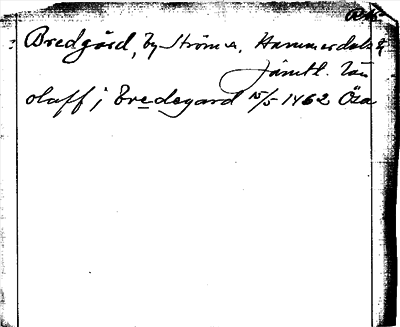 Bredgård, by Ströms, Hammerdals
Jämtl. län
olaff j bredegard 15/5 1462 Öra